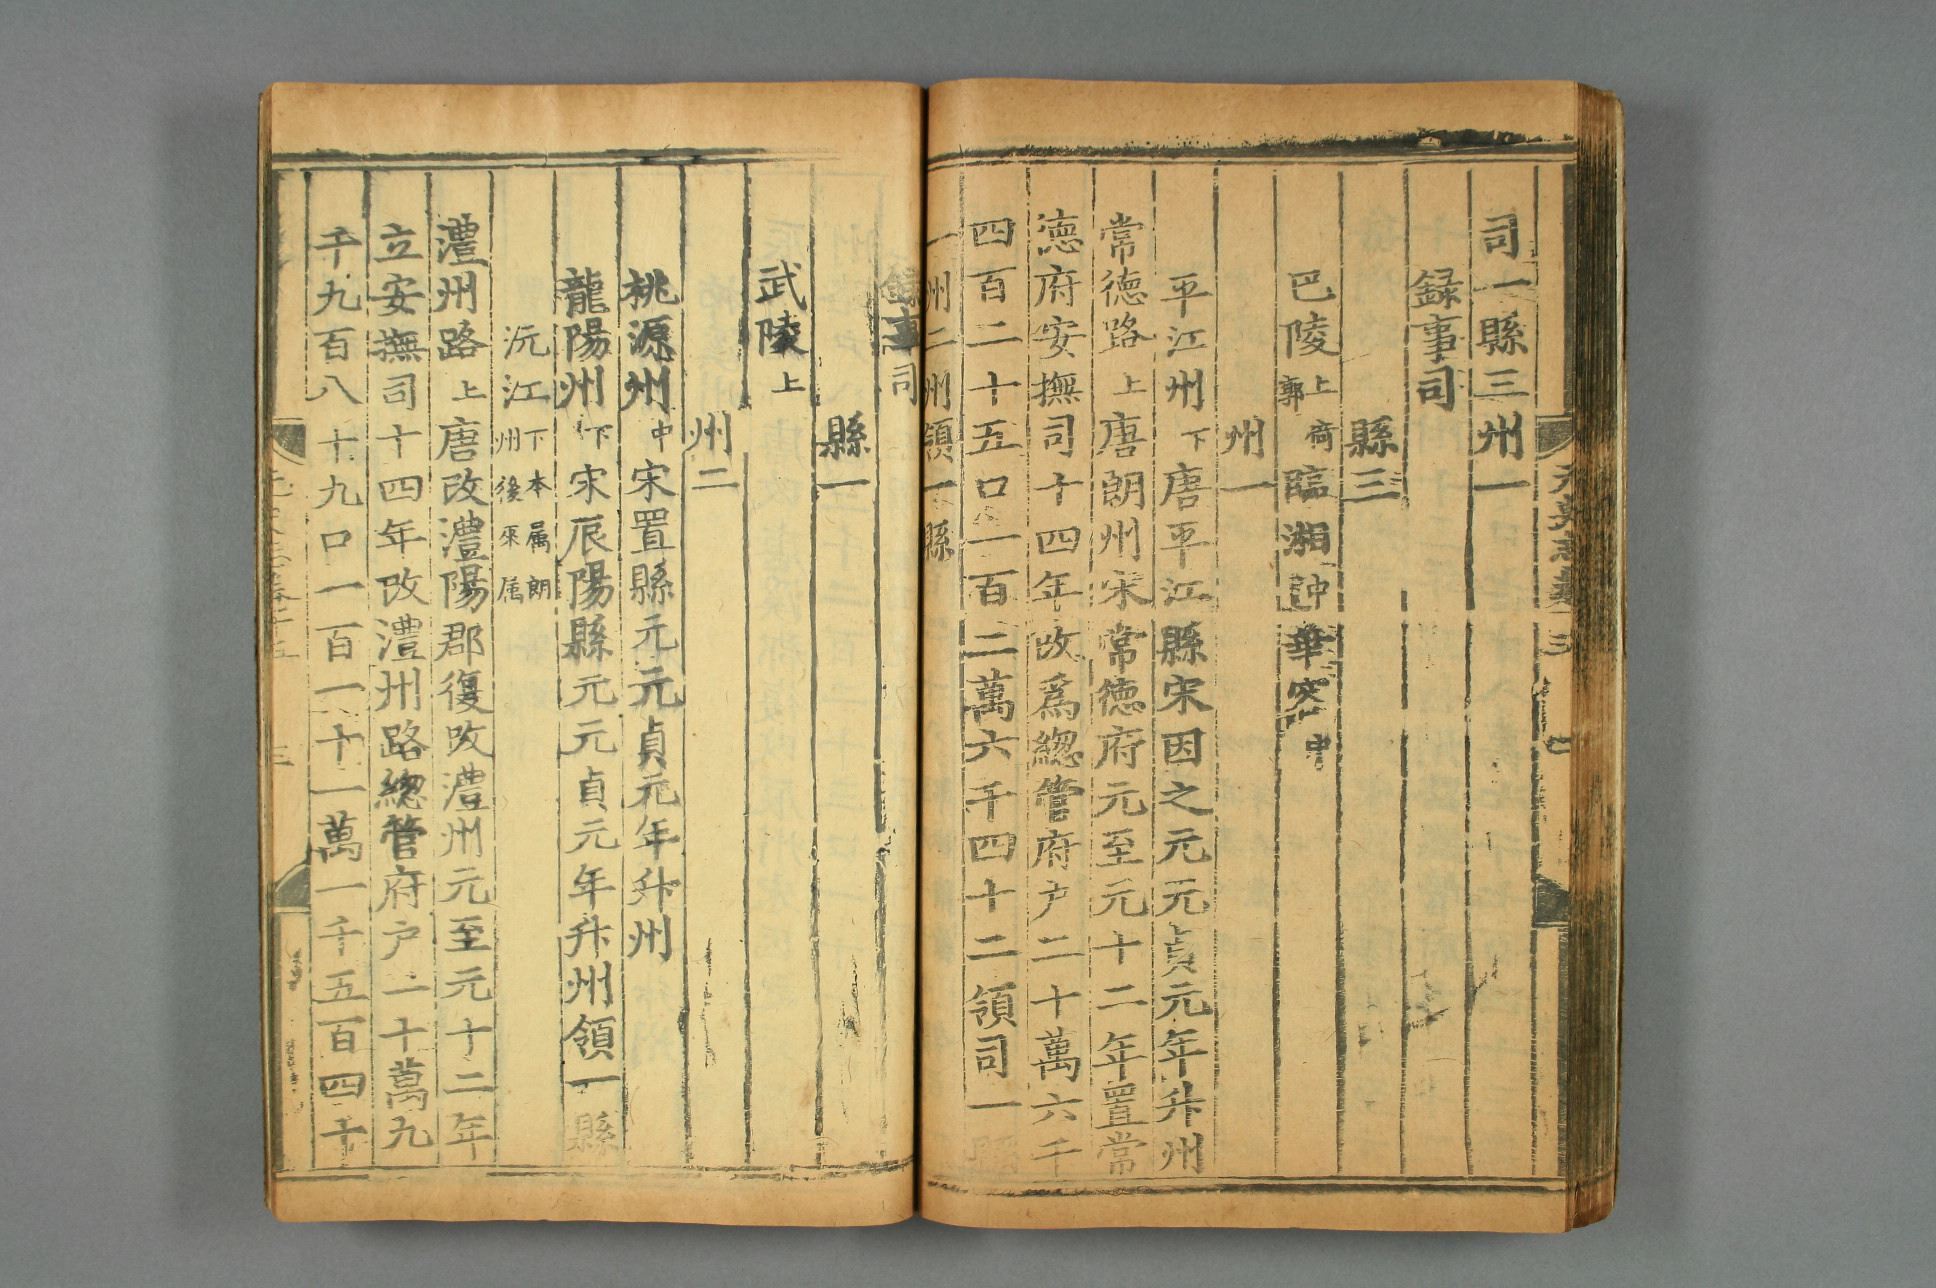 司一縣三州一
録事司
縣三
巴陵上倚郭臨湘中華容中
州一
平江州下唐平江縣宋因之元元貞元年升州
常徳路上唐朗州宋常徳府元至元十二年置常
徳府安撫司十四年改爲緫管府户二十萬六千
四百二十五口一百二萬六千四十二領司一
一州二州領一縣
録事司
縣一
武陵上
州二
桃源州中宋置縣元元貞元年升州
龍陽州下宋辰陽縣元元貞元年升州領一縣
沅江下本属朗州後來属
澧州路上唐改澧陽郡復改澧州元至元十二年
立安撫司十四年改澧州路緫管府户二十萬九
千九百八十九口一百一十一萬一千五百四十